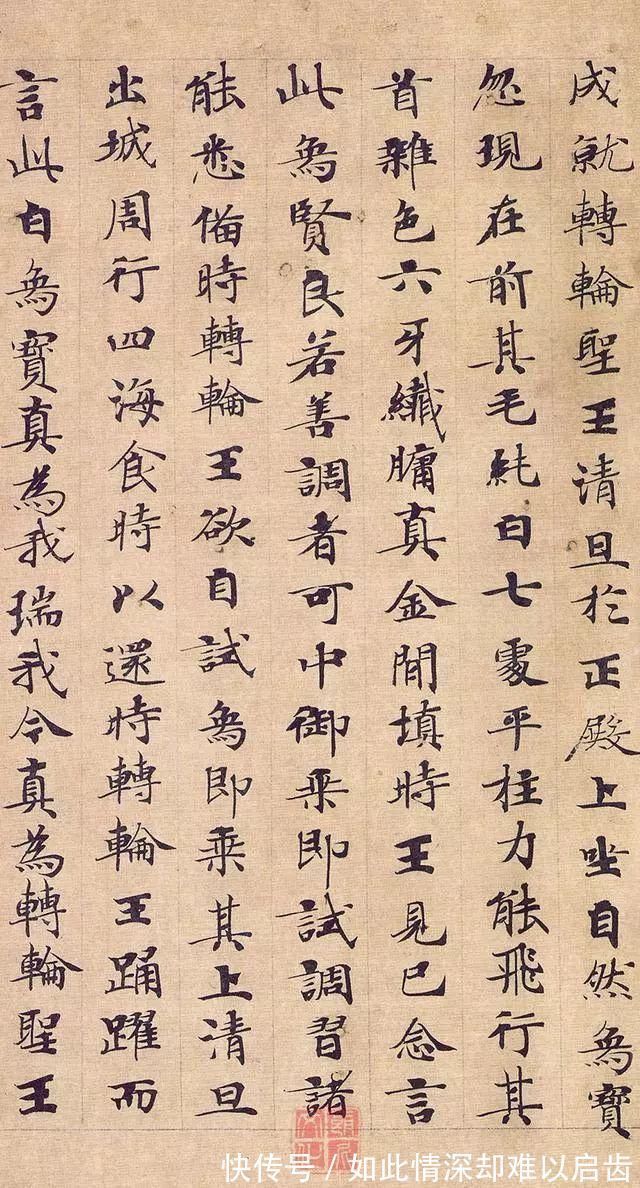 成就轉輪聖王清旦於正殿上坐自然象寶
忽現在前其毛純白七處平柱力能飛行其
首雜色六牙纖𦟛真金間填時王見已念言
此象賢良若善調者可中御乘即試調習諸
能悉備時轉輪王欲自試象即乘其上清旦
出城周行四海食時以還時轉輪王踊躍而
言此白象寶真為我瑞我今真為轉輪聖王
快传号／如此情深却难以启齿